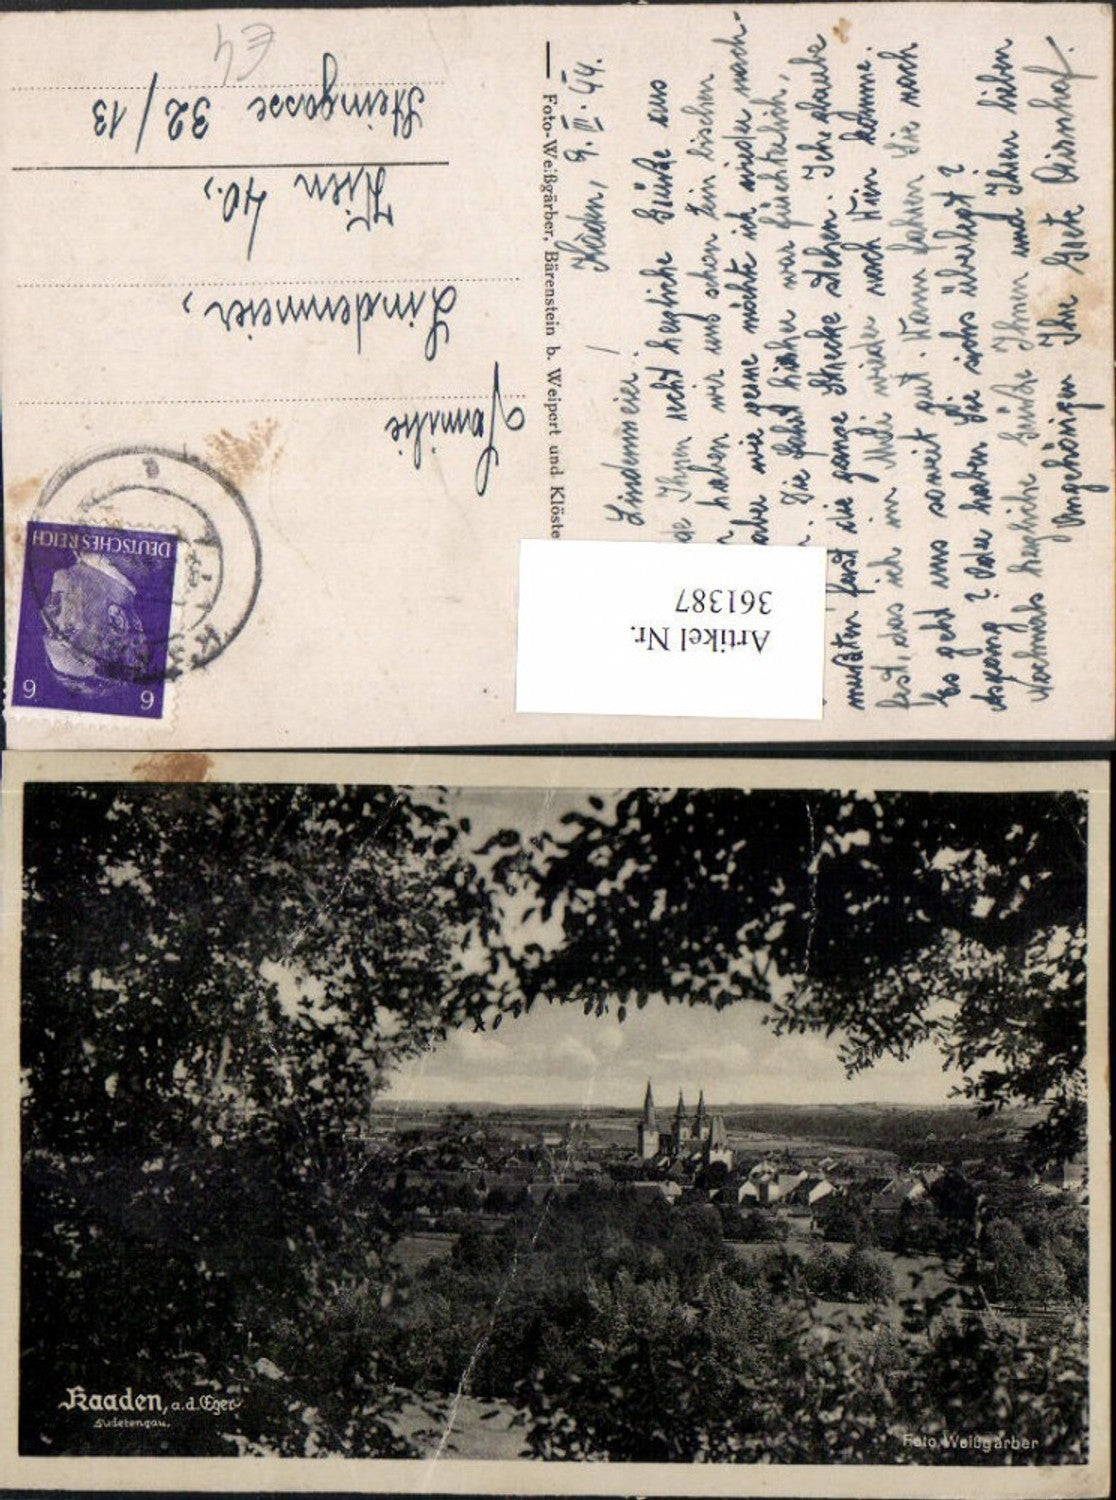 Kaaden, 9. III. 44.
Lindenmeier!
de Ihnen recht herzliche Grüße aus
haben wir uns schon ein bischen
aber wie gerne möchte ich wieder nach-
Die Fahrt hieher war fürchterlich,
mußten fast die ganze Strecke stehen. Ich glaube
fest, das ich im Mai wieder nach Wien komme.
Es geht uns soweit gut. Wann fahren Sie nach
Aspang? Oder haben Sie sichs überlegt?
Nochmals herzliche Grüße Ihnen und Ihren lieben
Angehörigen Ihre Grete
Foto-Weißgärber, Bärenstein b. Weipert und Klöste
Familie
Lindenmeier,
Wien 40.,
Steingasse 32/13
DEUTSCHES REICH
6 6
Artikel Nr.
361387
Kaaden, a.d. Eger
Sudetengau.
Foto Weißgärber